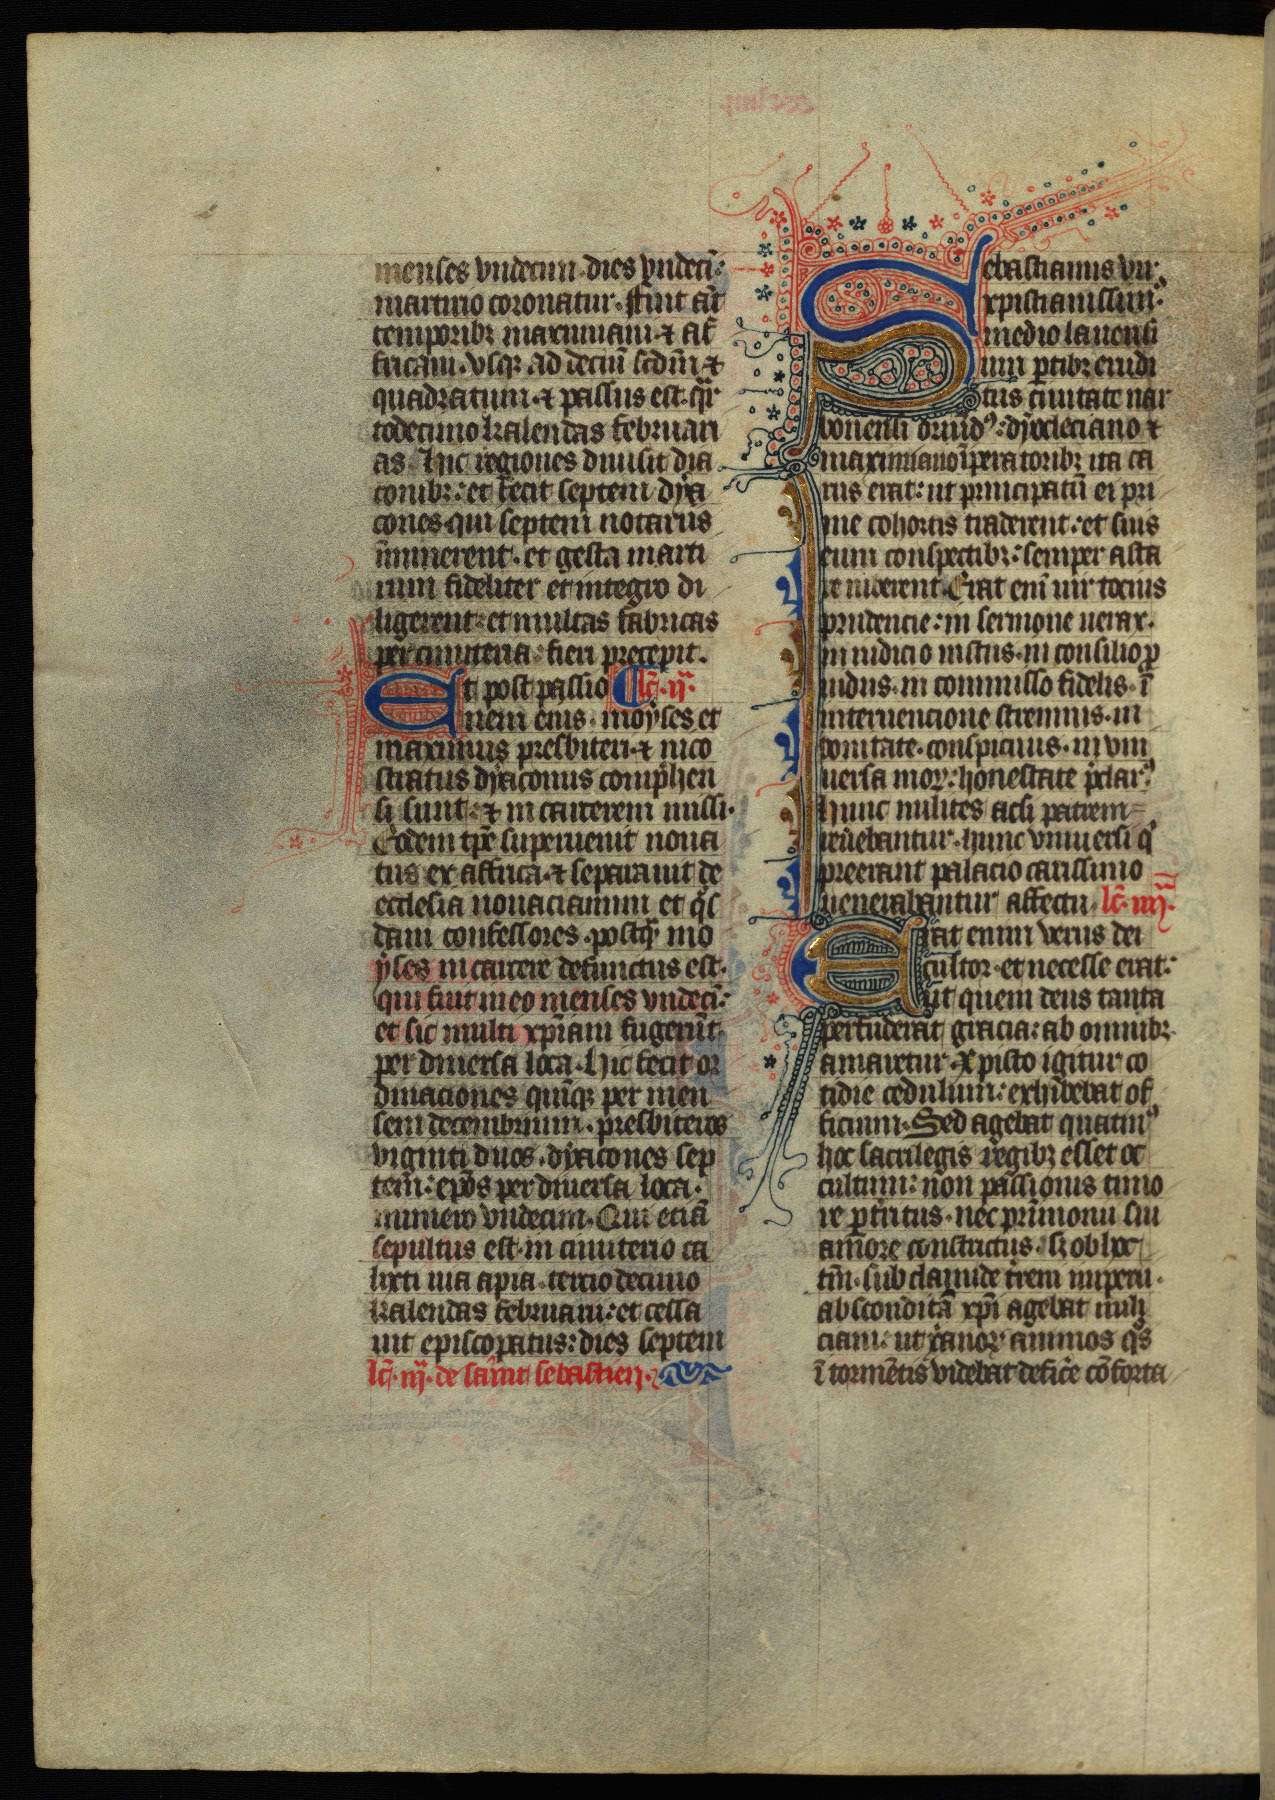 menses vndecim dies vndeci᷑:
martirio coronatur. Fuit aūt
temporibꝫ maximiani ⁊ af
fricani. vsqꝫ ad deciū scdm̄ ⁊
quadratum. ⁊ passus est. qͣr
todecimo kalendas februari
as. Hic regiones diuisit dia
conibꝫ: et fecit septem dya
cones. qui septem notariis
īminerent. et gesta marti
rum fideliter et integro di
ligerent: et multas fabricas
per cimiteria fieri precepit.
Et post passio lc̄. ij.ᵃ
nem eius. moyses et
maximus presbiteri. ⁊ nico
stratus dyaconus comp̄hen
si sunt: ⁊ in carcerem missi.
Eodem tp̄e superuenit noua
tus ex affrica. ⁊ separauit de
ecclesia nouacianum et qͦs
dam confessores. postqͣ mo
yses in carcere defunctus est.
qui fuit in eo menses vndeci᷑:
et sic multi xp̄iani fugerūt
per diuersa loca. Hic fecit or
dinaciones quīqꝫ per men
sem decembrium. presbiteros
viginti duos. dyacones sep
tem: ep̄os per diuersa loca.
numero vndecim. Qui etiā
sepultus est. in cimiterio ca
lixti uia apia. tercio decimo
kalendas februarii: et cessa
uit episcopatus: dies septem
lc̄. iij.ᵃ de saint sebastien.
Sebastianus uir
xpistianissim᷒.
mediolanensi
um ꝑtibꝫ erudi
tus ciuitate nar
bonensi oriūd᷒: dyocleciano ⁊
maximiano īperatoribꝫ ita ca
rus erat: ut principatū ei pri
me cohortis traderent: et suis
eum conspectibꝫ: semper asta
re iuberent. Erat enī uir tocius
prudencie: in sermone uerax.
in iudicio iustus. in consilio ꝓ
uidus. in commisso fidelis. ī
interuencione strenuus. in
bonitate. conspicuus. in vni
uersa moꝝ: honestate p̄clar᷒.
Hunc milites acsi patrem
reūebantur. hunc vniuersi qͥ
preerant palacio carissimo
uenerabantur affectu. lc̄. iiij.ᵃ
Erat enim verus dei
cultor. et necesse erat:
ut quem deus tanta
perfuderat gracia: ab omnibꝫ
amaretur. Xpisto igitur co
tidie cedulium: exhibebat of
ficium. Sed agebat quatin᷒
hoc sacrilegis regibꝫ esset oc
cultum: non passionis timo
re ꝑt̄ritus. nec prīmonii sui
amore constrictus. sꝫ ob hoc
tm̄. sub clamide t̄reni imperii.
absconditā xp̄i agebat mili
ciam: ut xͣanoꝝ animos qͦs
ī tormētis videbat deficẽ cōforta